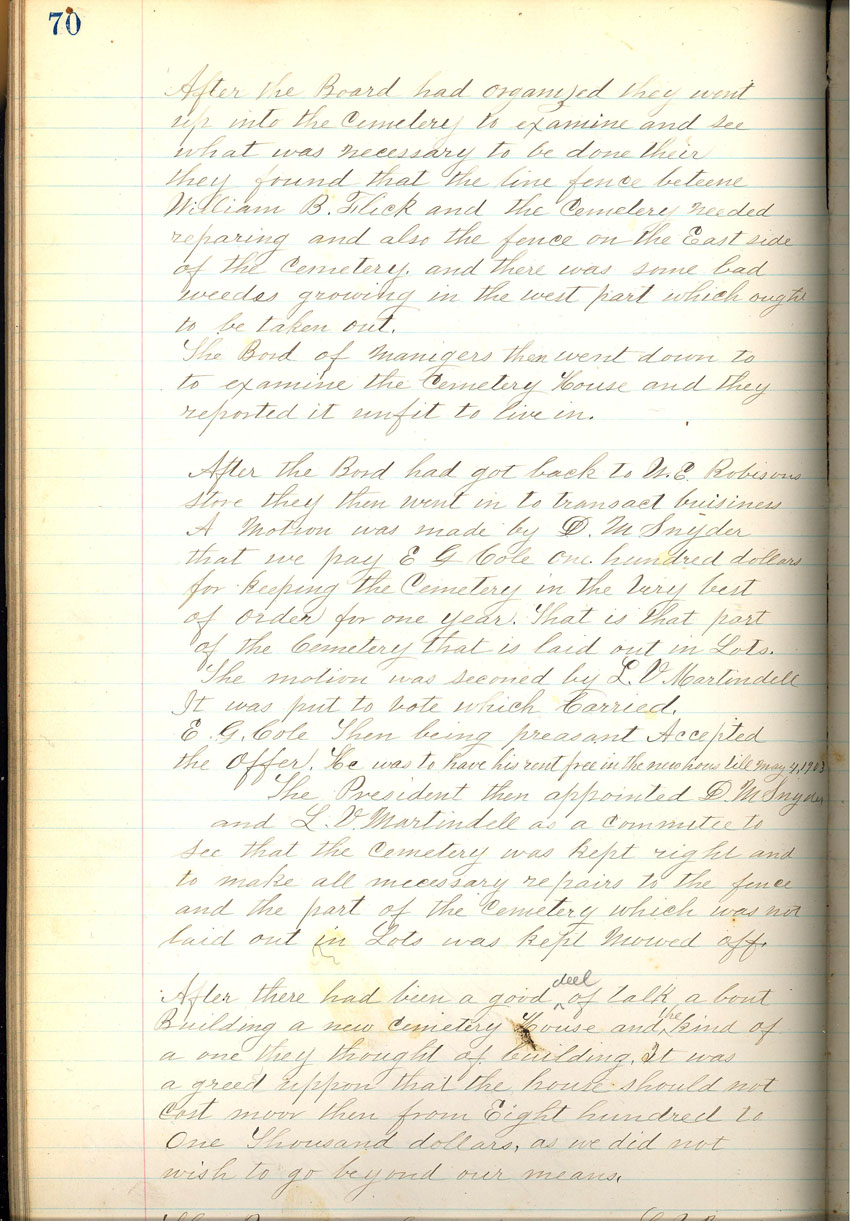 70
After the Board had organized they went
up into the Cemetery to examine and see
what was necessary to be done their
they found that the line fence beteene
William B. Flick and the Cemetery needed
reparing and also the fence on the East side
of the Cemetery. and there was some bad
weedes growing in the west part which ought
to be taken out.
The Bord of Manigers then went down to
to examine the Cemetery House and they
reported it unfit to live in.
After the Bord had got back to N. E. Robisons
store they then went in to transact buisiness
A Motion was made by D. M Snyder
that we pay E G Cole One hundred dollars
for keeping the Cemetery in the Very best
of order for one year. That is that part
of the Cemetery that is laid out in Lots.
The motion was seconed by L. V. Martindell
It was put to vote which Carried.
E. G. Cole Then being preasant Accepted
the Offer. He was to have his rent free in the new hous till May 4, 1903
The President then appointed D. M Snyder
and L. V. Martindell as a Commitie to
see that the Cemetery was kept right and
to make all necessary repairs to the fence
and the part of the Cemetery which was not
laid out in Lots was kept Mowed off.
After there had been a good deel of talk a bout
Building a new Cemetery House and the kind of
a one they thought of building. It was
a greed uppon that the house should not
Cost moor then from Eight hundred to
One Thousand dollars, as we did not
wish to go beyond our means.